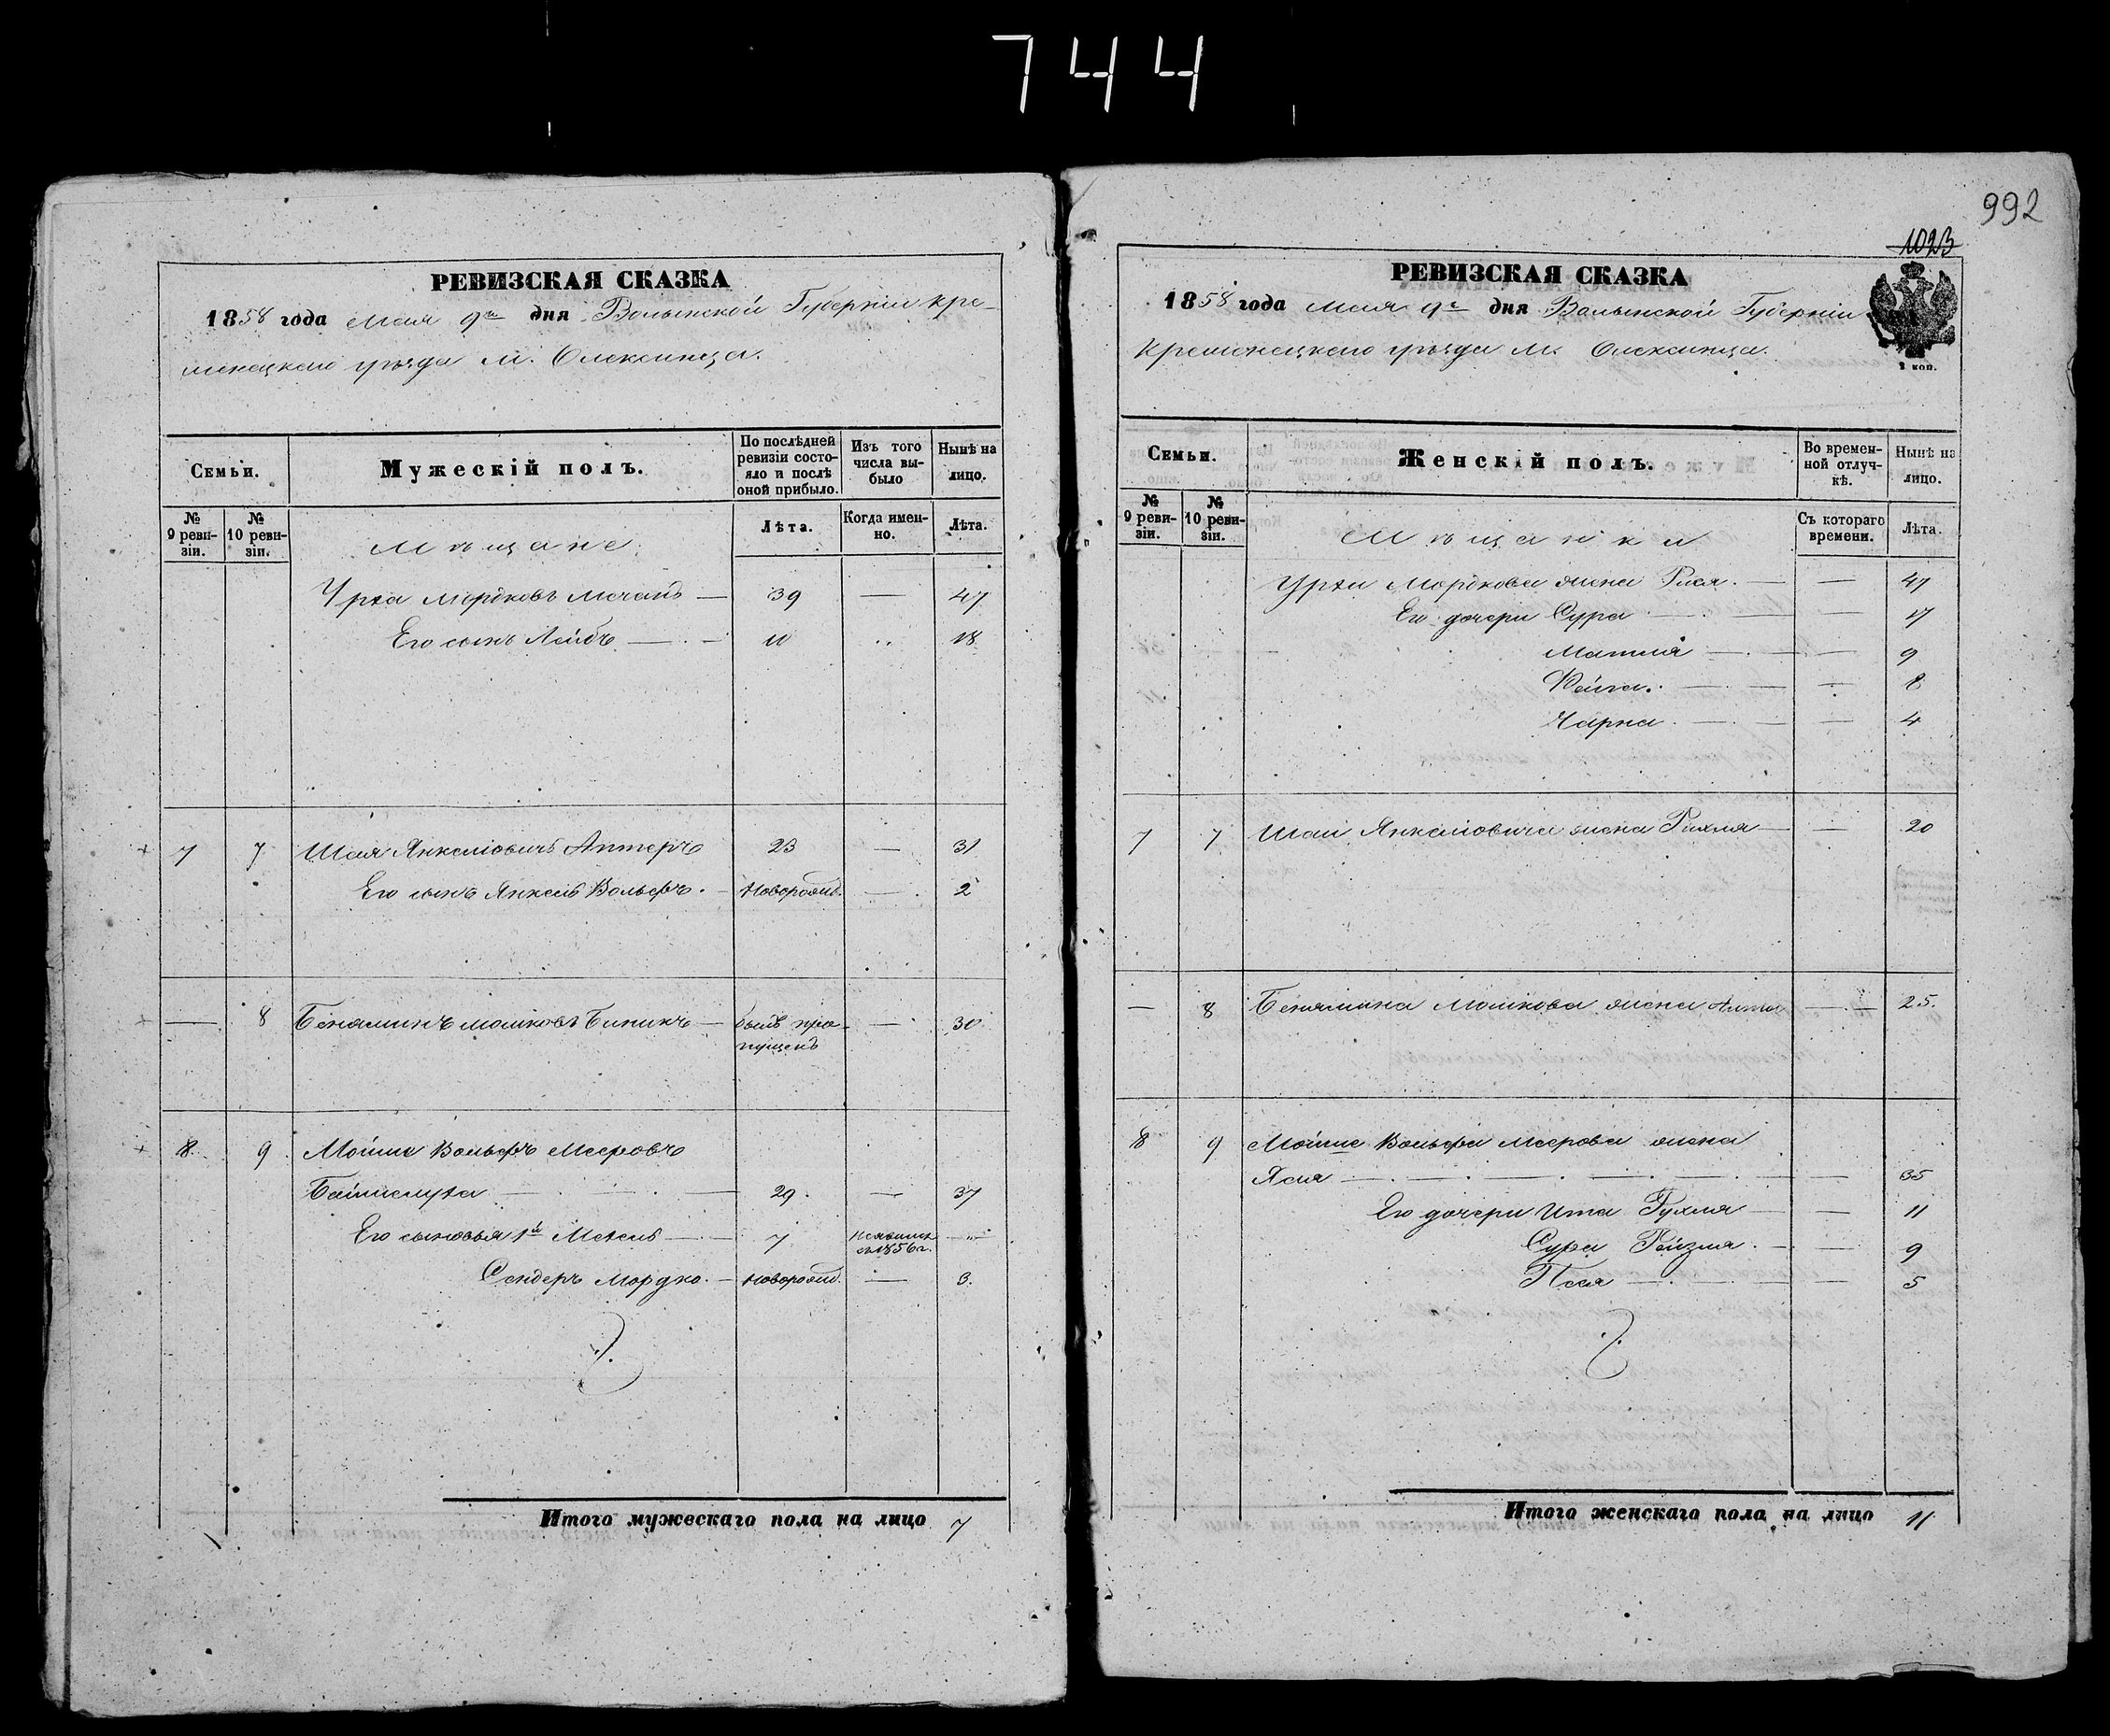 744
РЕВИЗСКАЯ СКАЗКА
1858 года Мая 9го дня Волынской Губерніи Кре-
менецкаго уѣзда м. Олексинца.
Семьи.
Мужескій полъ.
По послѣдней ревизіи состояло и послѣ оной прибыло.
Изъ того числа выбыло
Нынѣ на лицо.
№ 9 ревизіи.
№ 10 ревизіи.
Лѣта.
Когда именно.
Лѣта.
Мѣщане
Мордковъ — 39 — 47
Его сынъ Лейбъ — 10 „ 18
7 7 Шая Янкелiовичъ Аптеръ 23 — 31
Его сынъ Янкель Вольфъ. — Новорожд. — 2
— 8 Беняминъ Мошковъ Бикикъ — былъ про- — 30
пущенъ
8. 9. Мойше Вольфъ Мееровъ
29. — 37
Его сыновья 1й — 7 неявился — „
съ 1856 г.
Сендеръ Мордко. — Новорожд. — 3.
Итого мужескаго пола на лицо 7
992
1023
РЕВИЗСКАЯ СКАЗКА
1858 года Мая 9го дня Волынской Губерніи
Кременецкаго уѣзда м. Олексинца.
2 коп.
Семьи.
Женскій полъ.
Во временной отлучкѣ.
Нынѣ на лицо.
№ 9 ревизіи.
№ 10 ревизіи.
Съ котораго времени.
Лѣта.
Мѣщанки
Мордкова жена Рися. — — 47
Его дочери Сура — — 17
Матля — — 9
Фейга. — — 8
Чарна. — — 4
7 7 Шаи Янкелiовича жена Рихля — — 20
— 8 Бенямина Мошкова жена — 25.
8 9 Мойше Вольфа Меерова жена
Хая — — 35
Его дочери Ита Рухля — — 11
Сура Рейзля. — — 9
Песя — — 5
Итого женскаго пола на лицо 11